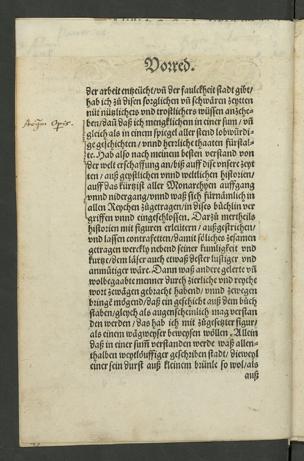 Vorred.
der arbeit entzeücht/vñ der faulckheit stadt gibt/
hab ich zů disen sorglichen vñ schwären zeytten
nüt nutzlichers vnd trostlichers wüssen anzehe-
ben/dañ daß ich mengklichem in einer sum/ vñ
gleich als in einem spiegel aller stend lobwürdi-
ge geschichten/ vnnd herrliche thaaten fürstal-
te. Hab also nach meinem besten verstand von
der welt erschaffung an/biß auff dise vnsere zeyt
ten/ auß geystlichen vnnd weltlichen historien/
auff das kürtzist aller Monarchyen auffgang
vnnd nidergang/vnnd waß sich fürnämlich in
allen Reychen zůgetragen/in dises büchlin ver
griffen vnnd eingeschlossen. Darzů mertheils
historien mit figuren erleütern/ außgestrichen/
vnd lassen contrafetten/damit söliches zesamen
getragen wercklin
kurtze/dem läser auch etwas dester lustiger vnd
anmütiger wäre. Dann waß andere gelerte vñ
wolbegaabte menner durch zierliche vnd reyche
wort zewägen gebracht habend/ vnnd zewegen
bringẽ mögend/daß ein geschicht auß dem bůch
staben/gleych als augenscheinlich mag verstan
den werden/ das hab ich mit zůgesetzter figur/
als einem wägweyser beweysen wöllen. Allein
daß in einer sum̃ verstanden werde waß allen-
thalben weytlöuffiger geschriben stadt/ dieweyl
einer sein durst auß kleinem brünle so wol/als
auß